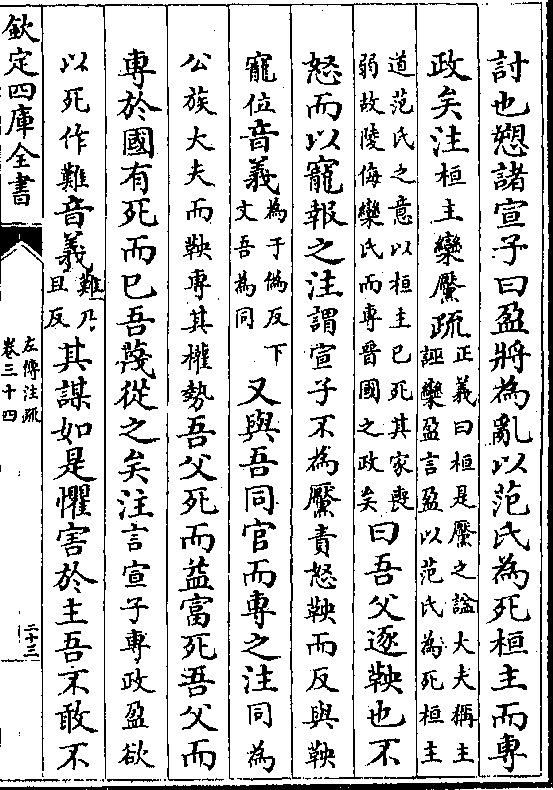 討也愬諸宣子曰盈將為亂以范氏為死桓主而專
政矣注桓主欒黶疏正義曰桓是黶之諡大夫稱主
誣欒盈言盈以范氏為死桓主
道范氏之意以桓主已死其家喪
弱故陵侮欒氏而專晉國之政矣曰吾父逐鞅也不
怒而以寵報之注謂宣子不為黶責怒鞅而反與鞅
寵位音義為于偽反下
文吾為同又與吾同官而專之注同為
公族大夫而鞅專其權勢吾父死而益富死吾父而
專於國有死而已吾蔑從之矣注言宣子專政盈欲
以死作難音義難乃
旦反其謀如是懼害於主吾不敢不
欽定四庫全書
左傳注疏
卷三十四
二十三